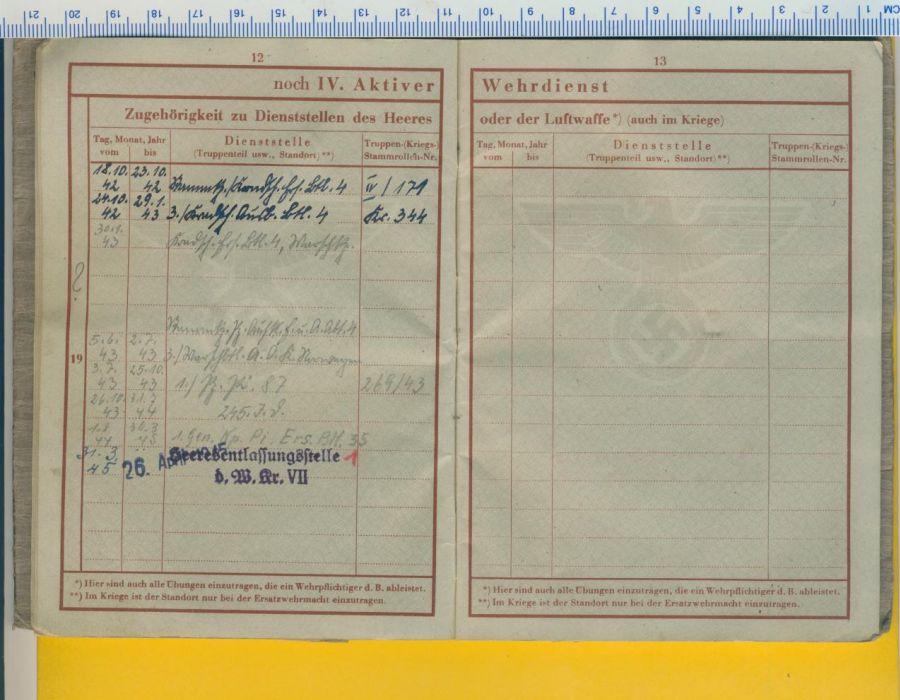 CM 1 2 3 4 5 6 7 8 9 10 11 12 13 14 15 16 17 18 19 20 21
12
noch IV. Aktiver
Zugehörigkeit zu Dienststellen des Heeres
Tag, Monat, Jahr
vom bis
Dienststelle
(Truppenteil usw., Standort)**)
Truppen-(Kriegs-)
Stammrollen-Nr.
18.10. 23.10.
42 42 /Kradsch. Ers. Btl. 4 IV / 171
24.10. 29.1.
42 43 3./Kradsch. Ausb. Btl. 4 Kr. 344
30.1.
43 Kradsch. Ers. Btl. 4,
?
5.6. 2.7.
43 43 3./ A.O.K. Norwegen
19
3.7. 25.10.
43 43 1./ 87 269/43
26.10.
43 44 245. I.D.
30.3
1. Gen. Kp. Pi. Ers. Btl. 35
31.3.
45 26. Heeresentlassungsstelle 1
d. W. Kr. VII
*) Hier sind auch alle Übungen einzutragen, die ein Wehrpflichtiger d. B. ableistet.
**) Im Kriege ist der Standort nur bei der Ersatzwehrmacht einzutragen.
13
Wehrdienst
oder der Luftwaffe*) (auch im Kriege)
Tag, Monat, Jahr
vom bis
Dienststelle
(Truppenteil usw., Standort)**)
Truppen-(Kriegs-)
Stammrollen-Nr.
*) Hier sind auch alle Übungen einzutragen, die ein Wehrpflichtiger d. B. ableistet.
**) Im Kriege ist der Standort nur bei der Ersatzwehrmacht einzutragen.